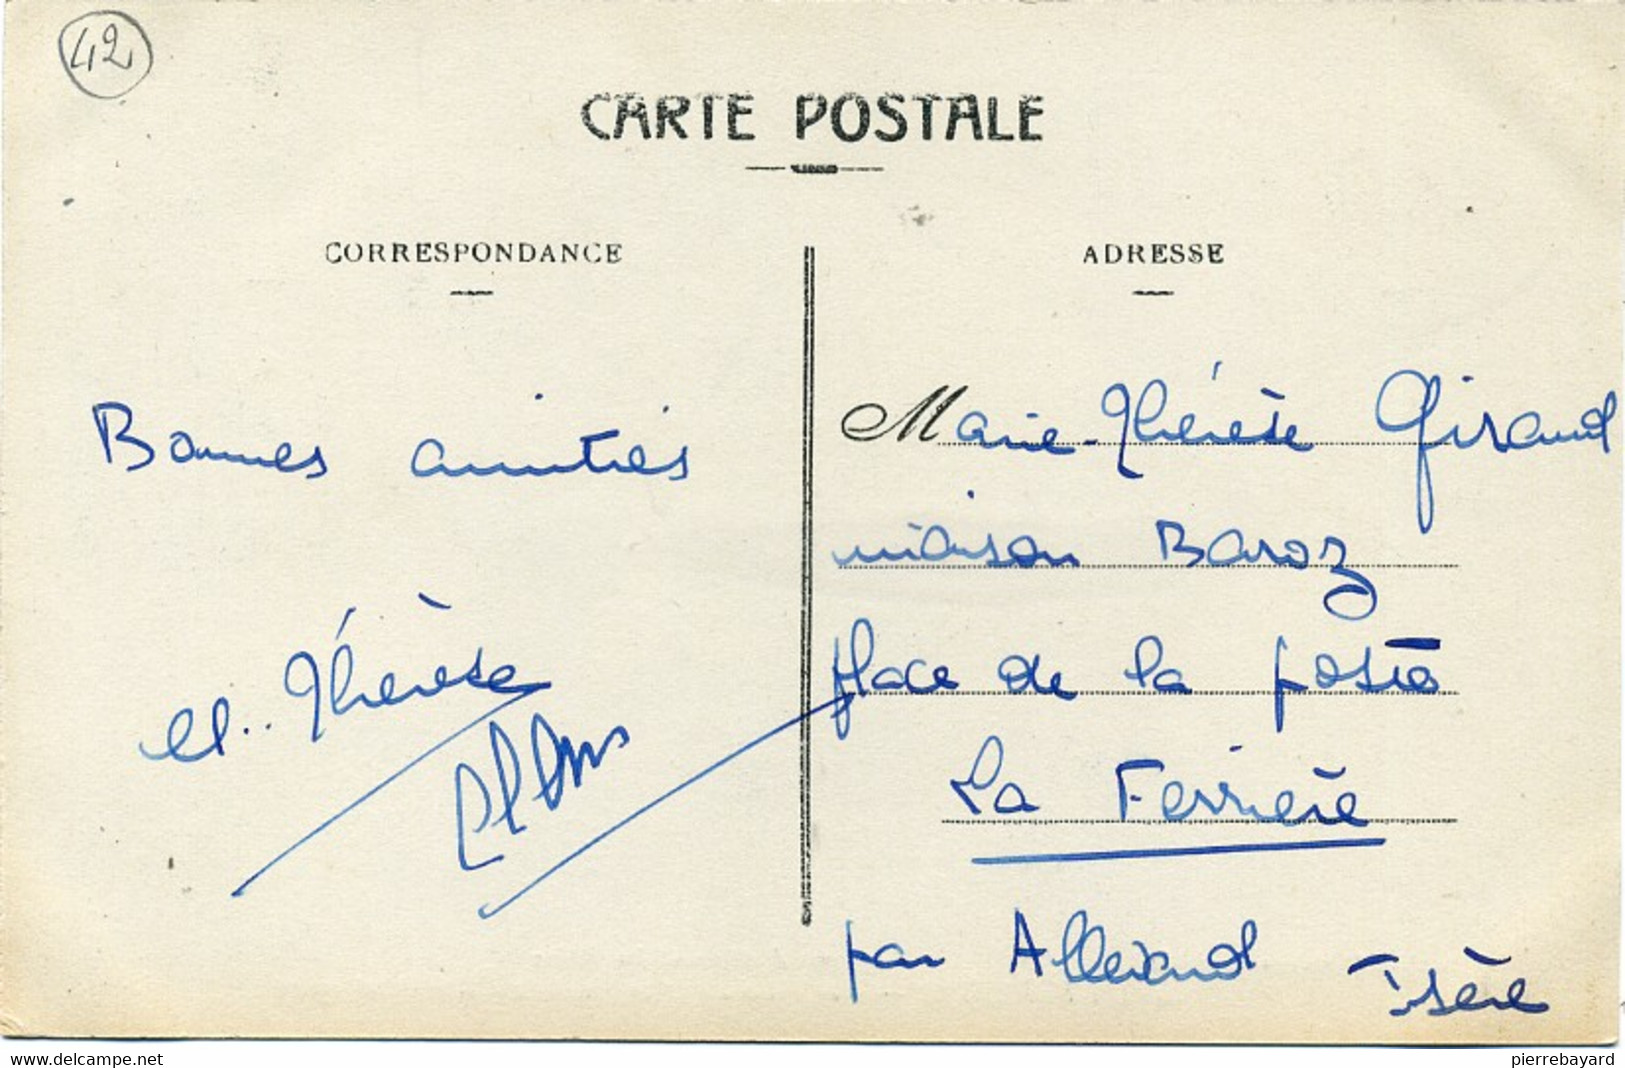 42
CARTE POSTALE
CORRESPONDANCE
ADRESSE
Bonnes amitiés
M. Thérèse
Marie-Thérèse Giraud
maison Baroz
place de la poste
La Ferrière
par Allevard Isère
www.delcampe.net
pierrebayard